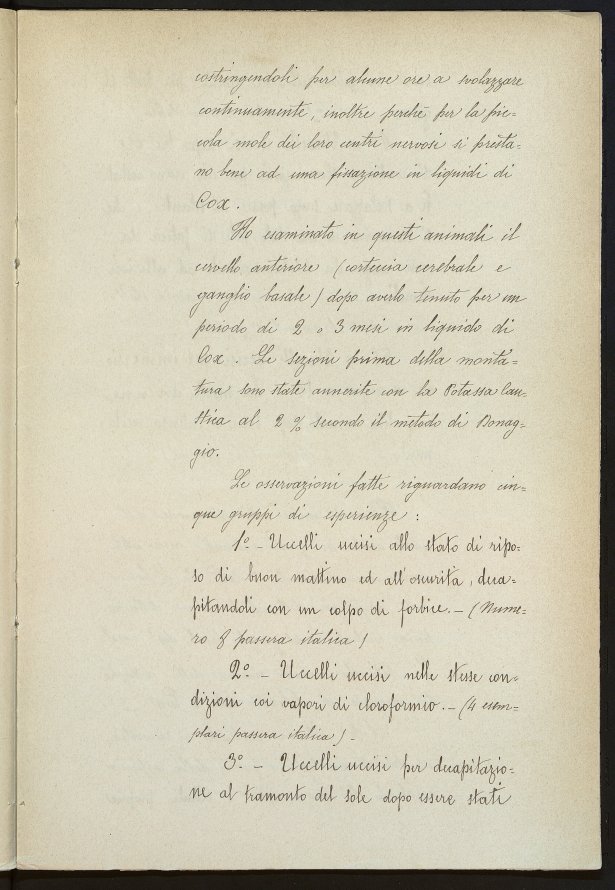 costringendoli per alcune ore a svolazzare
continuamente, inoltre perchè per la pic=
cola mole dei loro centri nervosi si presta=
no bene ad una fissazione in liquidi di
Cox.
Ho esaminato in questi animali il
cervello anteriore (corteccia cerebrale e
ganglio basale) dopo averlo tenuto per un
periodo di 2 o 3 mesi in liquido di
Cox. Le sezioni prima della monta=
tura sono state annerite con la Potassa Cau=
stica al 2 % secondo il metodo di Donag=
gio.
Le osservazioni fatte riguardano cin=
que gruppi di esperienze :
1º - Uccelli uccisi allo stato di ripo=
so di buon mattino ed all'oscurità, deca=
pitandoli con un colpo di forbice. - (Nume=
ro 8 passera italica)
2º - Uccelli uccisi nelle stesse con=
dizioni coi vapori di cloroformio. - (4 esem=
plari passera italica) -
3º - Uccelli uccisi per decapitazio=
ne al tramonto del sole dopo essere stati